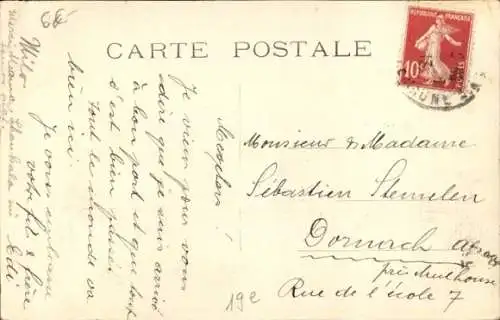 6€
CARTE POSTALE
RÉPUBLIQUE FRANÇAISE
10
Monsieur & Madame
Sébastien Stemelen
Dornach Alsace
près Mulhouse
Rue de l'école 7
19e
Je viens pour vous
dire que je suis arrivé
à bon port et que tout
s'est bien passé
tout le monde va
bien ici
Je vous embrasse
votre fils & frère
Edi